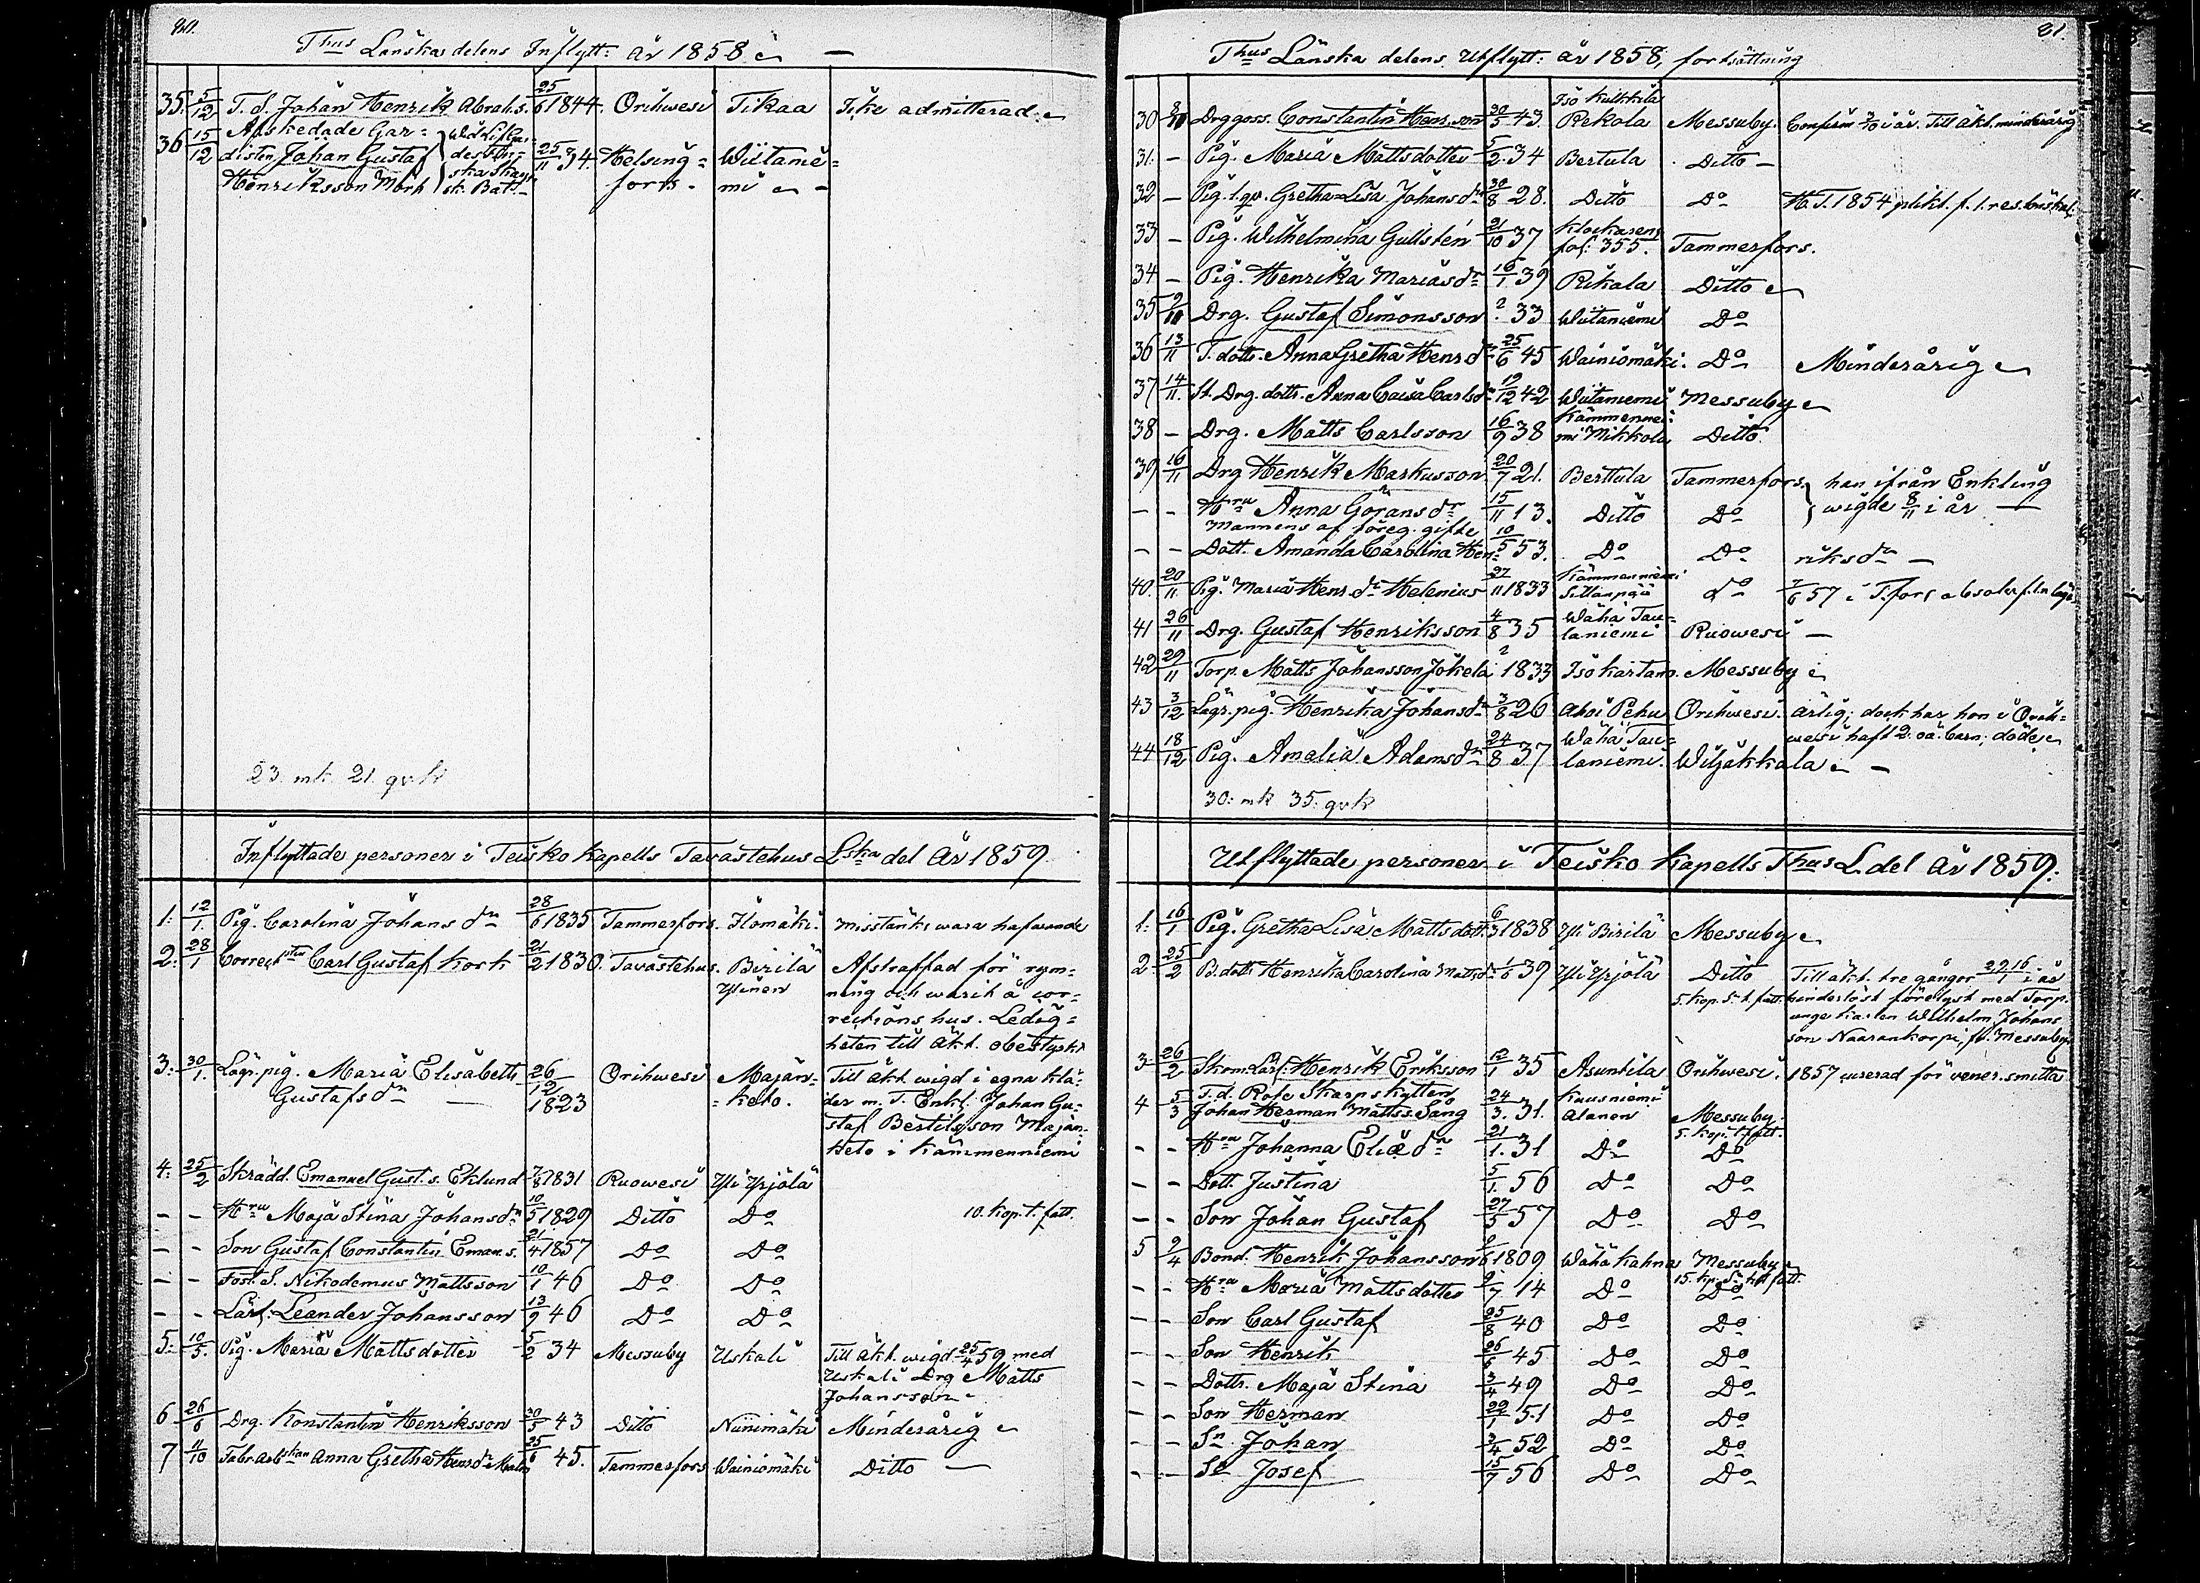 80.
Thus Länska delens Inflytt: år 1858
35. 5/12 T. S. Johan Henrik Abrah.s. 25/6 1844. Orihwesi Tikaa Icke admitterad.
36 15/12 Afskedade Gardisten Johan Gustaf Henriksson Mörk 25/11 34. Helsingfors. Wiitaniemi
23. mk. 21. qvk
Inflyttade personer i Teisko Kapells Tavastehus Lska del År 1859
1: 12/1. Pig. Carolina Johansdr 28/6 1835 Tammerfors. Ilomäki. misstänkt wara hafwande
2: 28/1 Carl Gustaf Kork 21/2 1830. Tavastehus. Birilä Ylinen Afstraffad för rymning och warit å correctionshus. Ledigheten till äkt. obestyrkt
3: 30/1. Lägr. pig. Maria Elisabeth Gustafsdr 26/12 1823 Orihwesi Majanketo. Till äkt wigd i egna kläder m. T. Enkl. Johan Gustaf Bertilsson Majanketo i Kämmenniemi
4: 25/2 Skrädd. Emanuel Gust. s. Eklund 7/8 1831 Ruowesi Yli Yrjölä
- - Hru Maja Stina Johansdr 10/5 1829 Ditto Do 10. kop. t. fatt.
- - Son Gustaf Constantin Eman. s. 21/4 1857 Do Do
- - Fost. S. Nikodemus Mattsson 10/1 46 Do Do
- - Lärl. Leander Johansson 13/9 46 Do Do
5: 10/5. Pig. Maria Mattsdotter 5/2 34 Messuby Uskali Till äkt. wigd 25/4 59 med Uskali Drg Matts Johansson
6 26/6 Drg. Konstantin Henriksson 30/5 43 Ditto Niinimäki Minderårig
7 4/10 Fabr. Arb. Anna Gretha Hensdr 25/6 45. Tammerfors Wainiomäki Ditto
81.
Thus Länska delens Utflytt: år 1858, fortsättning
30 8/10 Drg goss. Constantin Hens. son 30/5 43. Iso Kulkkila Rekola Messuby. Confirm i år. Till äkt. minderårig
31. - Pig. Maria Mattsdotter 5/2. 34 Bertula Ditto
32 - Pig. l. qv. Gretha Lisa Johansdr 30/8 28. Ditto Do H. T. 1854 plikt. f. 1. res.
33 - Pig. Wilhelmina Gullstén 21/10 37 Klockarens fol: 355. Tammerfors.
34 - Pig. Henrika Mariasdr 16/1 39 Rikala Ditto
35 9/11 Drg. Gustaf Simonsson ? 33 Wiitaniemi Do
36 13/11 T. dottr. Anna Gretha Hensdr 25/6 45 Wainiomäki. Do Minderårig
37 14/11. St. Drg. dottr. Anna Caisa Carlsdr 19/12 42 Wiitaniemi Messuby
38 - Drg. Matts Carlsson 16/9 38 Kämmenniemi Mikkola Ditto
39 16/11 Drg Henrik Markusson 20/7 21. Berttula Tammerfors. han ifrån Enkling
- - Hru Anna Göransdr 15/11 13. Ditto Do wigde 8/11 i år
mannens af föreg. gifte
- - Dott. Amanda Carolina Hen- 10/5 53. Do Do riksdr
40. 20/11. Pig. Maria Hens.dr Helenius 27/11 1833 Kämmenniemi Sillanpää do 7/6 57 i T.fors absolv.
41 26/11 Drg. Gustaf Henriksson 4/8 35 Wähä Taulaniemi Ruowesi
42 29/11 Torp. Matts Johansson Jokela ? 1833 Iso kartano. Messuby
43 3/12 Lägr. pig. Henrika Johansdr 3/8 26 Ahoi Peku Orihwesi. Ärlig; dock har hon i Orihwesi haft 2. oä. barn; döde
44 18/12 Pig. Amalia Adamsdr 24/8 37 Wähä Taulaniemi. Wiljakkala
30: mk 35. qvk
Utflyttade personer i Teisko Kapells Thus L. del År 1859.
1: 16/1 Pig. Gretha Lisa Mattsdott. 6/3 1838 Yli Birilä Messuby
2 25/2 B. dottr Henrika Carolina Mattsdr 1/6 39 Yli Yrjölä Ditto 5. kop. s. t. fatt. Till äkt. tre gånger i år hinderlöst förelyst med Torp. unge karlen Wilhelm Johansson Naarankorpi, fr. Messuby
3: 26/2 Skom. Lärl: Henrik Eriksson 12/1 35 Asuntila Orihwesi. 1857 curerad för vener. smitta
4 5/3 T. d. Rote Skarpskytten Johan Herman Mattss. Sång 24/3. 31. Kuusniemi Alanen Messuby. 5. kop. t. fatt.
- - Hru Johanna Eliædr 21/1. 31 Do Do
- - Dott. Justina 5/1. 56 Do Do
- - Son Johan Gustaf 27/5 57 Do Do
5 9/4 Bond. Henrik Johansson 1809 Wähä Kahna Messuby 15. kp. s. t. fatt.
- - Hru Maria Mattsdotter 2/7 14 Do Do
- - Son Carl Gustaf 25/8 40 Do Do
- - Son Henrik 26/6 45 Do Do
- - Dottr. Maja Stina 3/4 49 Do Do
- - Son Herman 22/1 51 Do Do
- - Sn Johan 2/4 52 Do Do
- - Sn Josef 15/7 56 Do Do